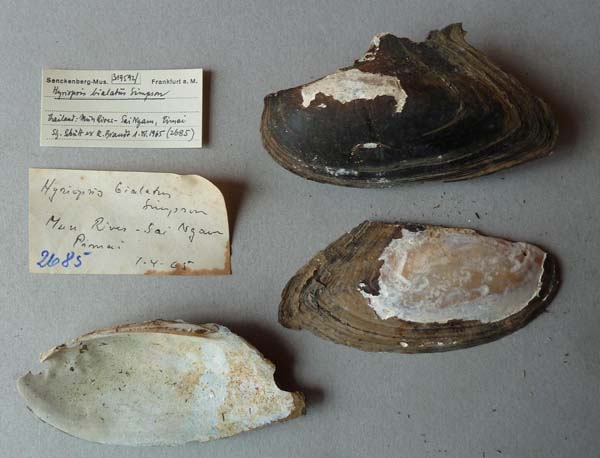 Senckenberg-Mus. 317592/ Frankfurt a. M.
Hyriopsis bialatus Simpson
Thailand: Mun River - Sai Ngam, Pimai
Sg. Schütt ex R. Brandt 1.IV.1965 (2685)
Hyriopsis bialatus
Simpson
Mun River - Sai Ngam
Pimai
2685 1-4-65